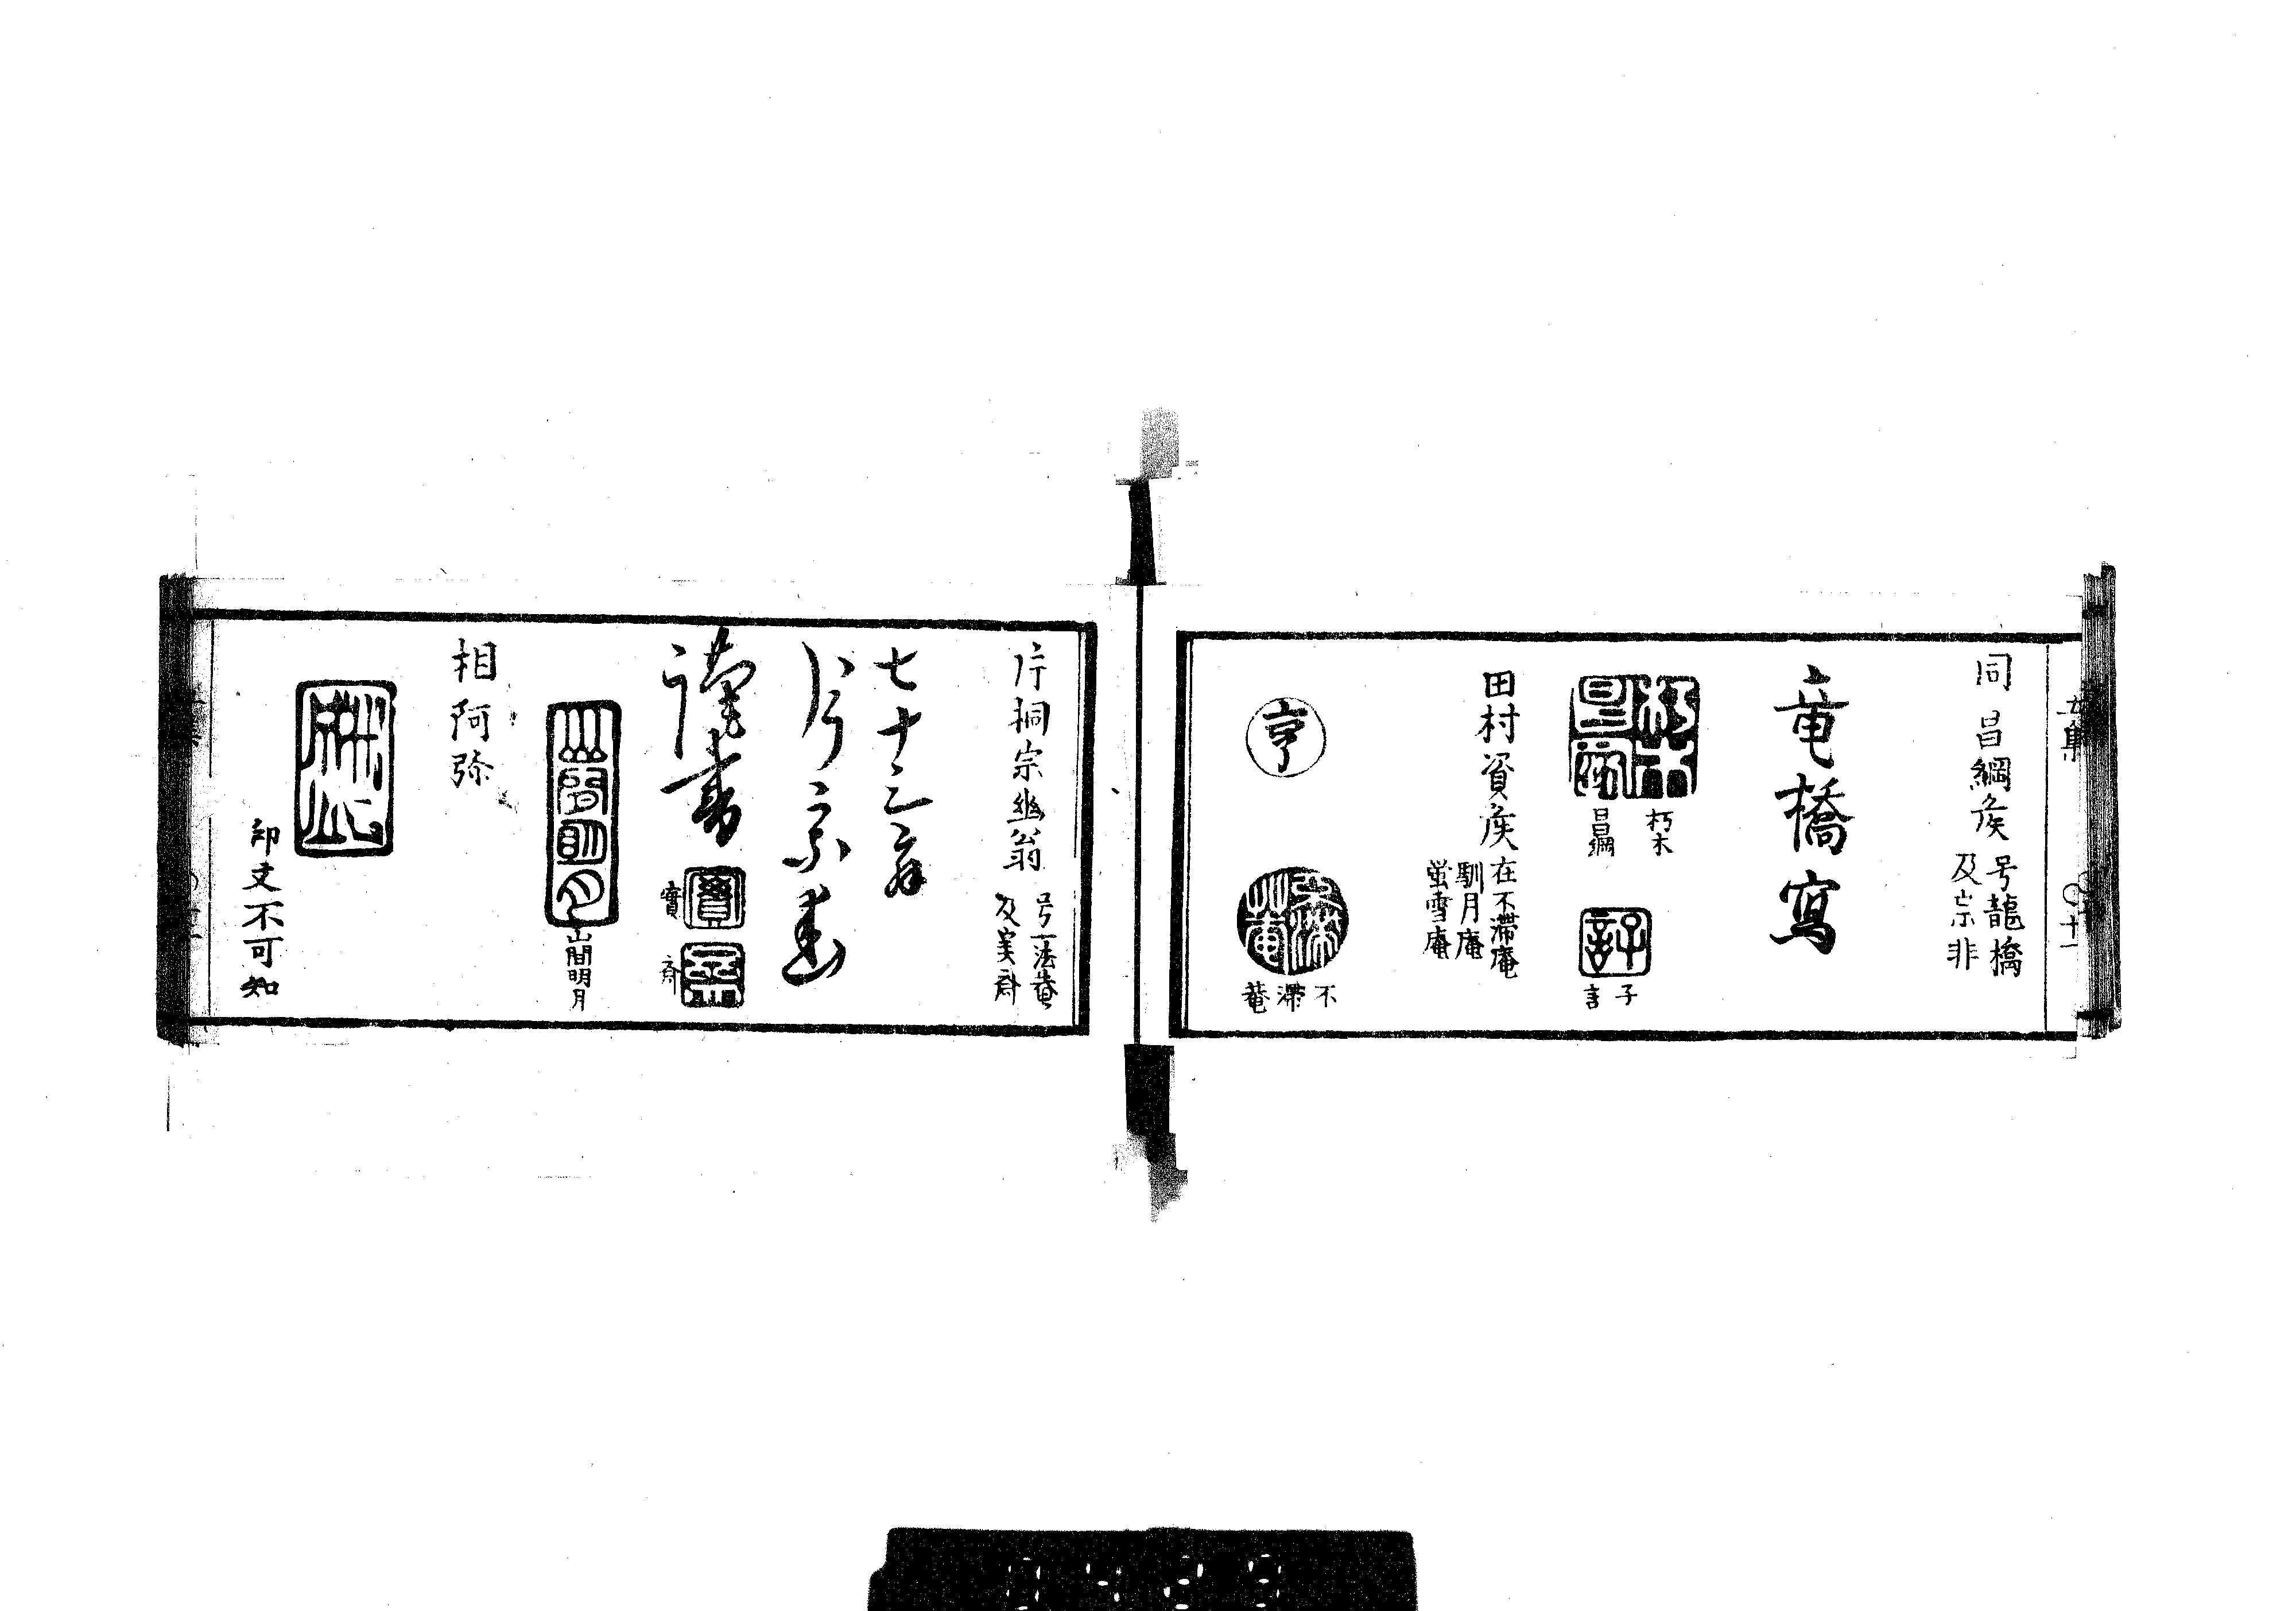 同 昌綱矦
号龍橋
及宗非
竜橋寫
朽木
昌綱
子
言
田村資矦
在不滞庵
馴月庵
蛍雪庵
亨
不滞菴
片桐宗幽翁
号一法菴
及実斎
七十三翁
片宗幽
謹書
實
斎
山間明月
相阿弥
印文不可知